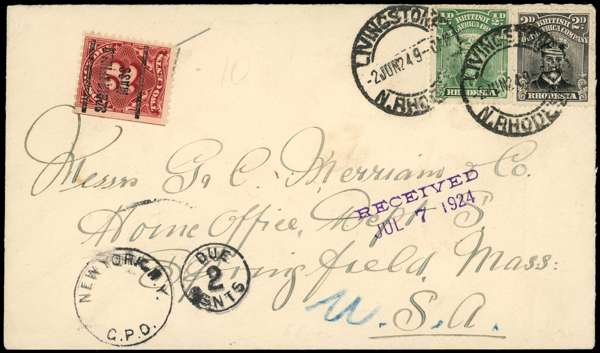 LIVINGSTONE
2 JUN 24 9-
N. RHODE
½D
BRITISH
SOUTH AFRICA COMPANY
RHODESIA
2D BRITISH 2D
SOUTH AFRICA COMPANY
RHODESIA
LIVINGSTON
JUN 24
N. RHODE
2
MASS.
Messrs G & C. Merriam & Co.
Home Office, Dept. S.
Springfield, Mass.
U. S. A.
RECEIVED
JUL 7 1924
NEW YORK, N.Y.
G.P.O.
DUE
2
CENTS